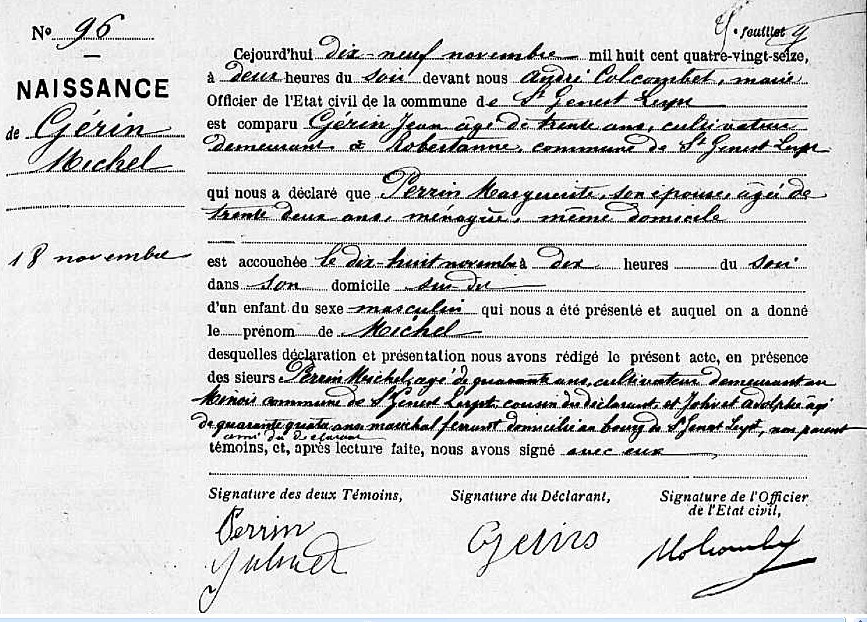 N° 96
feuillet
NAISSANCE
de Gérin
Michel
18 novembre
Cejourd'hui dix-neuf novembre mil huit cent quatre-vingt-seize,
à deux heures du soir devant nous André Colcombet, maire
Officier de l'Etat civil de la commune de St Genest Lerpt
est comparu Gérin Jean âgé de trente ans, cultivateur
demeurant à Robertanne, commune de St Genest Lerpt
qui nous a déclaré que Perrin Marguerite, son épouse, âgée de
trente deux ans, ménagère, même domicile
est accouchée le dix-huit novembre à dix heures du soir
dans son domicile sus dit
d'un enfant du sexe masculin qui nous a été présenté et auquel on a donné
le prénom de Michel
desquelles déclaration et présentation nous avons rédigé le présent acte, en présence
des sieurs Perrin Michel, agé de quarante ans, cultivateur demeurant au
Minois commune de St Genest Lerpt, cousin du déclarant, et adolphe âgé
de quarante quatre ans maréchal ferrant domicilié au bourg de St Genest Lerpt, non parent
ami du déclarant
témoins, et, après lecture faite, nous avons signé avec eux
Signature des deux Témoins, Signature du Déclarant, Signature de l'Officier
de l'Etat civil,
Perrin Gerin Colcombet